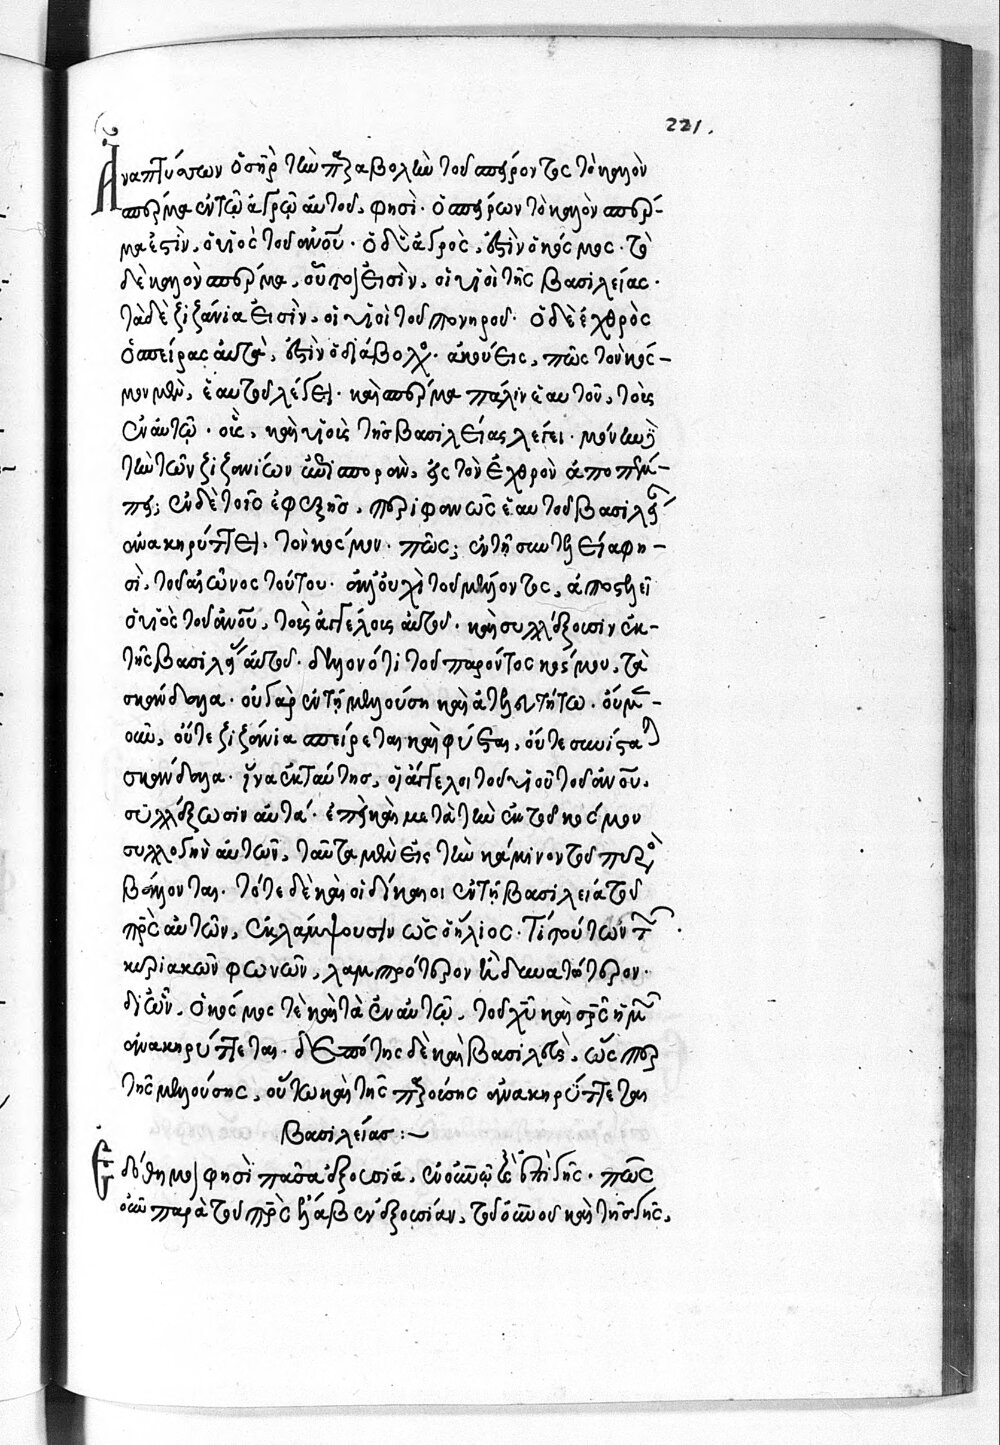 221.
Ἀναπτύσσων ὁ σὴρ τὴν παραβολὴν τοῦ σπείροντος τὸ καλὸν
σπέρμα ἐν τῷ ἀγρῷ αὐτοῦ, φησί· ὁ σπείρων τὸ καλὸν σπέρ-
μα ἐστὶν, ὁ υἱὸς τοῦ ἀνου· ὁ δὲ ἀγρὸς, ἐστὶν ὁ κόσμος· τὸ
δὲ καλὸν σπέρμα, οὗτοι εἰσὶν, οἱ υἱοὶ τῆς βασιλείας·
τὰ δὲ ζιζάνια εἰσὶν, οἱ υἱοὶ τοῦ πονηροῦ· ὁ δὲ ἐχθρὸς
ὁ σπείρας αὐτὰ, ἐστὶν ὁ διάβολος· ἀκούεις, πῶς τὸν κόσ-
μον μὲν, ἑαυτοῦ λέγει· καὶ σπέρμα πάλιν ἑαυτοῦ, τοῖς
ἐν αὐτῷ· οἷς, καὶ υἱοῖς τῆς βασιλείας λέγει· μόνην δὲ
τὴν τῶν ζιζανίων ἐπισποράν, εἰς τὸν ἐχθρὸν ἀποπέμ-
πει; ἐν δὲ τοῖς ἐφεξῆς, περιφανῶς ἑαυτοῦ βασιλείαν
ἀνακηρύττει, τὸν κόσμον· πῶς; ἐν τῇ συντελείᾳ φη-
σὶ, τοῦ αἰῶνος τούτου· ἀλλ' οὐχὶ τοῦ μέλλοντος, ἀποστελεῖ
ὁ υἱὸς τοῦ ἀνου, τοὺς ἀγγέλους αὐτοῦ· καὶ συλλέξουσιν ἐκ
τῆς βασιλείας αὐτοῦ· δηλονότι τοῦ παρόντος κόσμου, τὰ
σκάνδαλα· οὐ γὰρ ἐν τῇ μελλούσῃ καὶ ἀτελευτήτῳ,
οὖν, οὔτε ζιζάνια σπείρεται καὶ φύεται, οὔτε συνίσταται
σκάνδαλα· ἵνα ἐκ ταύτης, οἱ ἄγγελοι τοῦ υἱοῦ τοῦ ἀνου,
συλλέξωσιν αὐτά· ἐπεὶ καὶ μετὰ τὴν ἐκ τοῦ κόσμου
συλλογὴν αὐτῶν, ταῦτα μὲν εἰς τὴν κάμινον τοῦ πυρὸς
βάλλονται· τότε δὲ καὶ οἱ δίκαιοι ἐν τῇ βασιλείᾳ τοῦ
πρς αὐτῶν, ἐκλάμψουσιν ὡς ὁ ἥλιος· Τί τούτων τῶν
κυριακῶν φωνῶν, λαμπρότερον ἢ δυνατώτερον·
δι' ὧν, ὁ κόσμος τὲ καὶ τὰ ἐν αὐτῷ, τοῦ χυ καὶ σρς ἡμῶν
ἀνακηρύττεται· δεσπότης δὲ καὶ βασιλεὺς, ὥσπερ
τῆς μελλούσης, οὕτω καὶ τῆς παρούσης ἀνακηρύττεται
βασιλείας :~
Ἐδόθη μοι φησὶ πᾶσα ἐξουσία, ἐν οὐνῷ καὶ ἐπὶ γῆς· πῶς
οὖν παρὰ τοῦ πρς λαβὼν ἐξουσίαν, τοῦ οὐνοῦ καὶ τῆς γῆς,